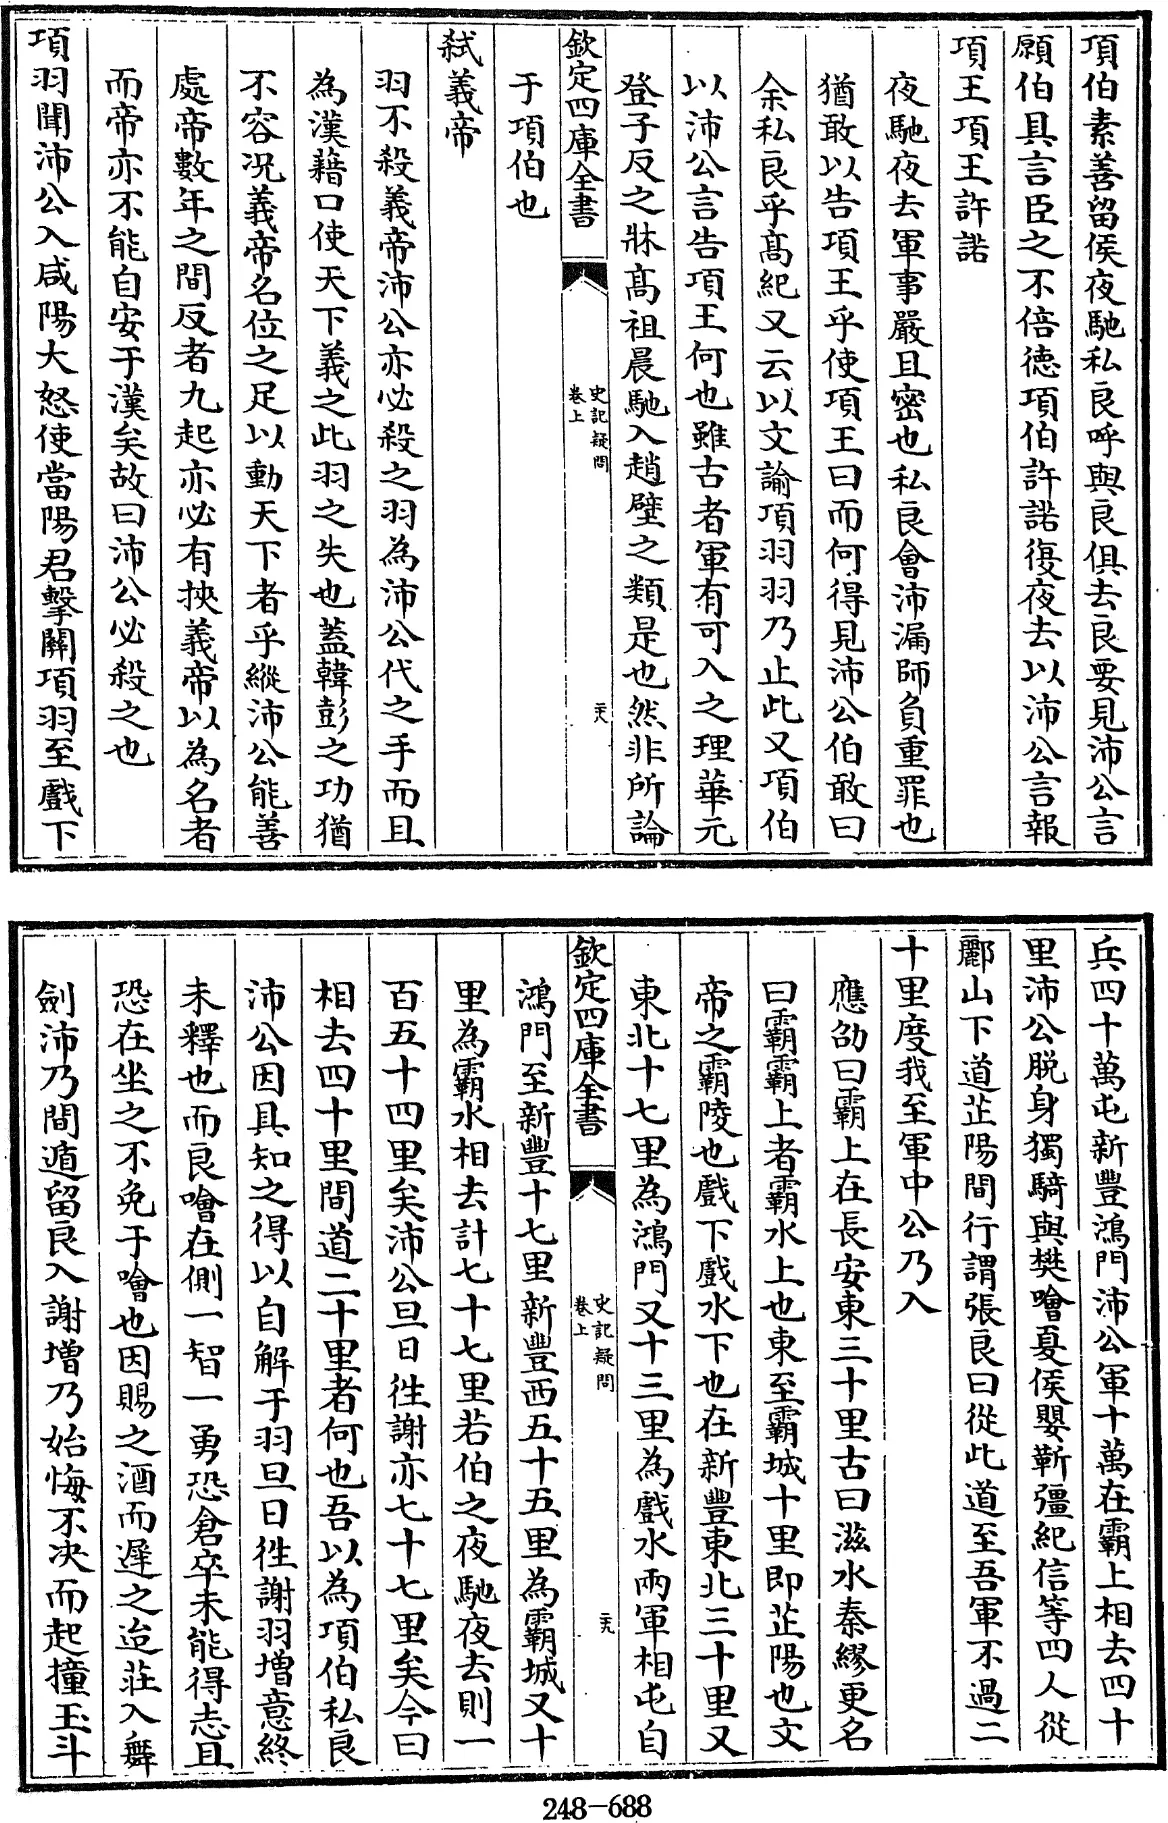 項伯素善留侯夜馳私良呼與良俱去良要見沛公言
願伯具言臣之不倍德項伯許諾復夜去以沛公言報
項王項王許諾
夜馳夜去軍事嚴且密也私良會沛漏師負重罪也
猶敢以告項王乎使項王曰而何得見沛公伯敢曰
余私良乎髙紀又云以文諭項羽羽乃止此又項伯
以沛公言告項王何也雖古者軍有可入之理華元
登子反之牀髙祖晨馳入趙壁之類是也然非所論
欽定四庫全書
史記疑問
卷上
二十八
于項伯也
弑義帝
羽不殺義帝沛公亦必殺之羽為沛公代之手而且
為漢藉口使天下義之此羽之失也蓋韓彭之功猶
不容况義帝名位之足以動天下者乎縱沛公能善
處帝數年之間反者九起亦必有挾義帝以為名者
而帝亦不能自安于漢矣故曰沛公必殺之也
項羽聞沛公入咸陽大怒使當陽君擊關項羽至戲下
兵四十萬屯新豐鴻門沛公軍十萬在霸上相去四十
里沛公脱身獨騎與樊噲夏侯嬰靳彊紀信等四人從
酈山下道芷陽間行謂張良曰從此道至吾軍不過二
十里度我至軍中公乃入
應劭曰霸上在長安東三十里古曰滋水秦繆更名
曰霸霸上者霸水上也東至霸城十里即芷陽也文
帝之霸陵也戲下戲水下也在新豐東北三十里又
東北十七里為鴻門又十三里為戲水兩軍相屯自
欽定四庫全書
史記疑問
卷上
二十九
鴻門至新豐十七里新豐西五十五里為霸城又十
里為霸水相去計七十七里若伯之夜馳夜去則一
百五十四里矣沛公旦日徃謝亦七十七里矣今曰
相去四十里間道二十里者何也吾以為項伯私良
沛公因具知之得以自解于羽旦日徃謝羽增意終
未釋也而良噲在側一智一勇恐倉卒未能得志且
恐在坐之不免于噲也因賜之酒而遲之迨莊入舞
劍沛乃間遁留良入謝增乃始悔不決而起撞玉斗
248-688